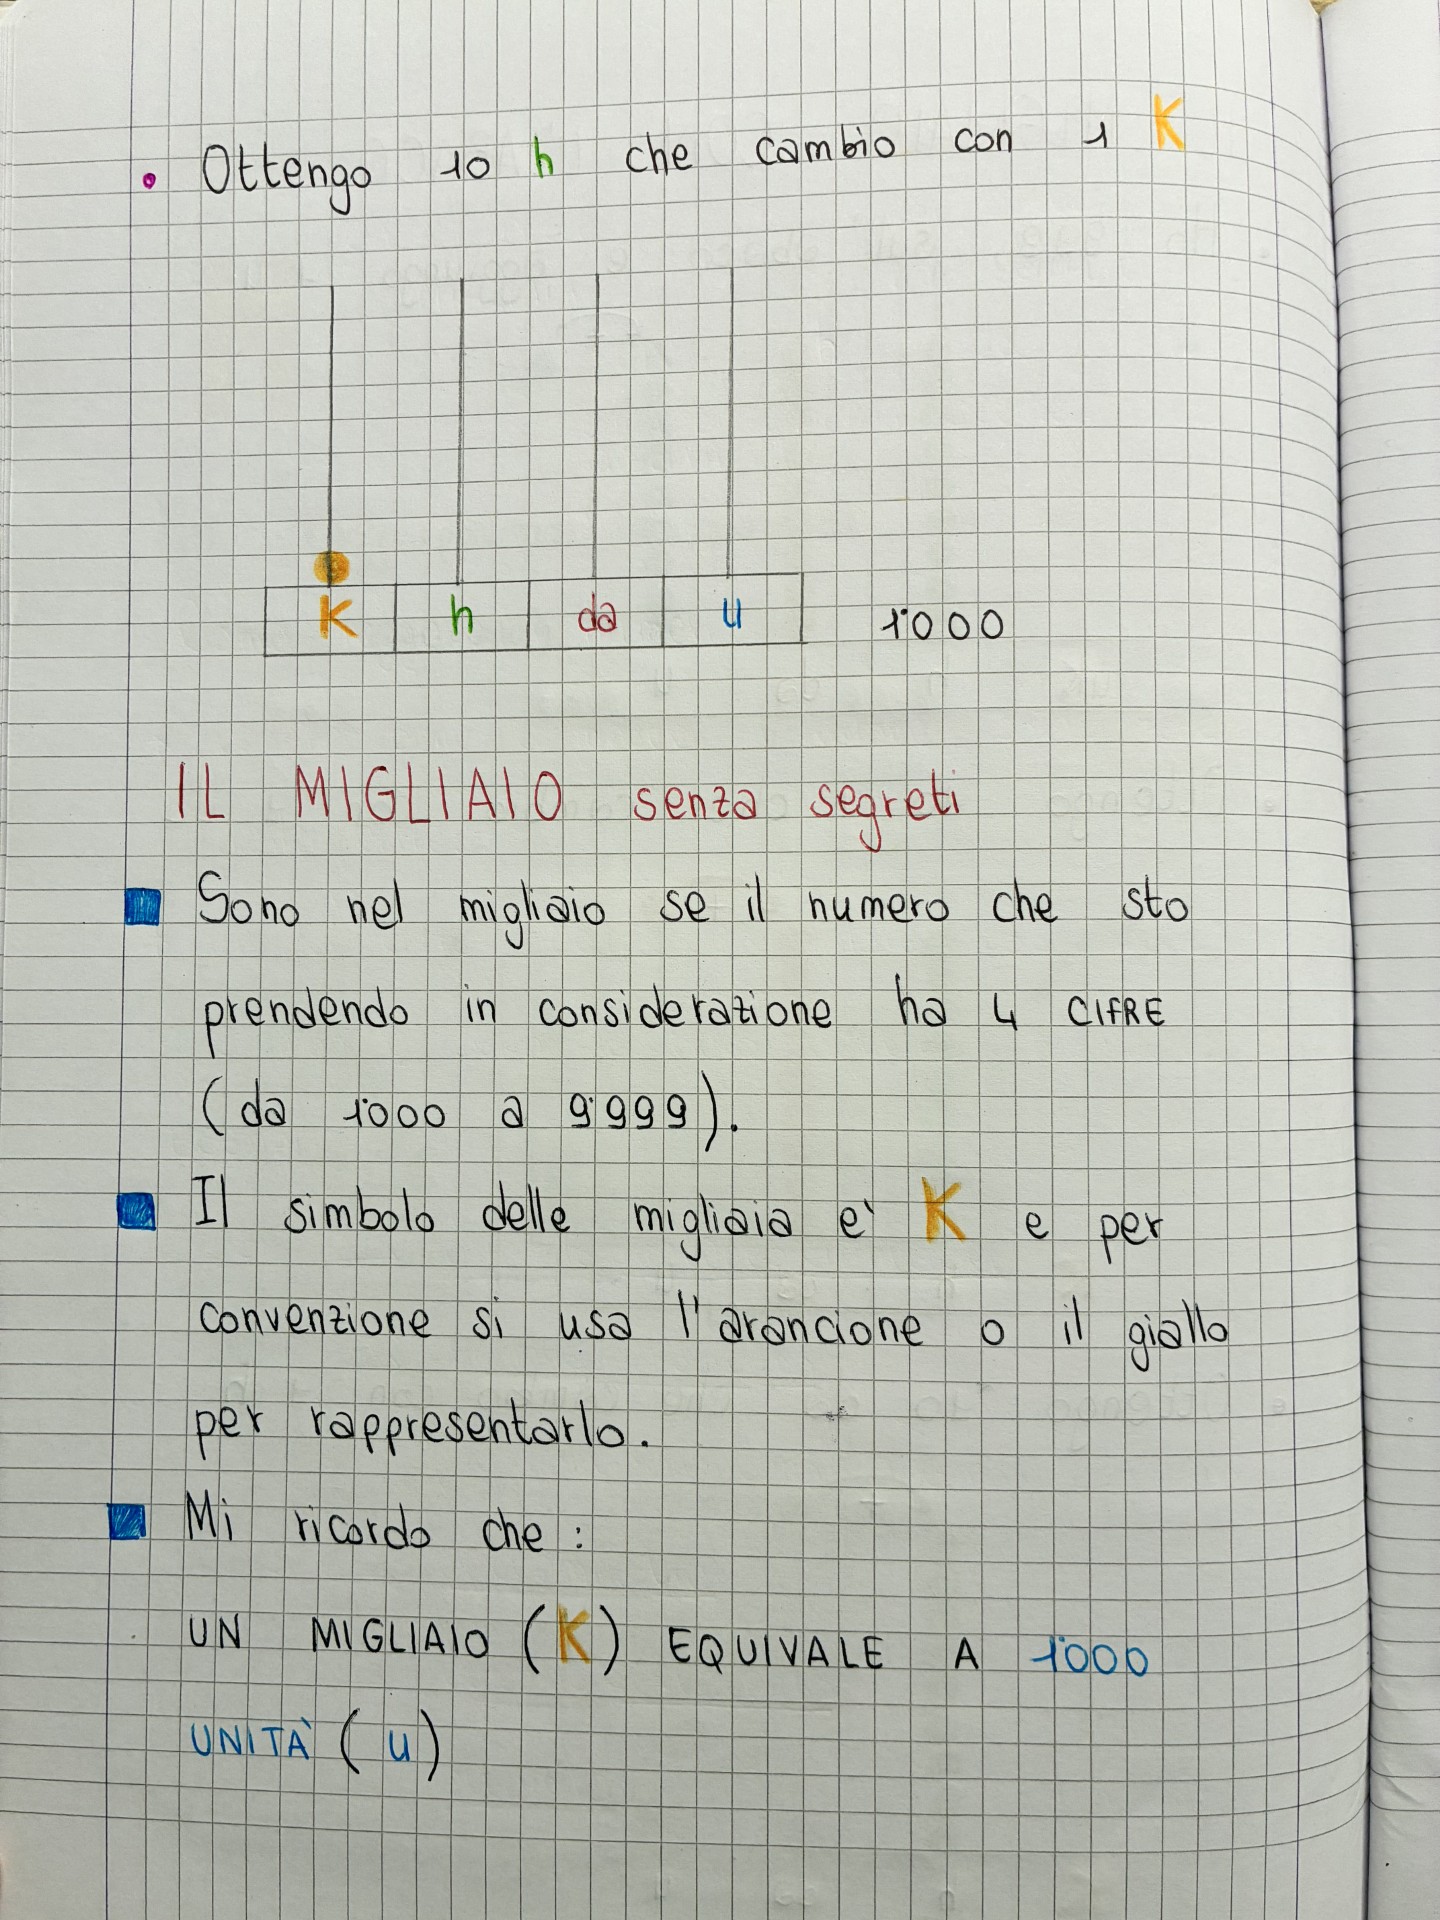 • Ottengo 10 h che cambio con 1 K
K h da u 1˙000
IL MIGLIAIO senza segreti
Sono nel migliaio se il numero che sto
prendendo in considerazione ha 4 CIFRE
(da 1˙000 a 9˙999).
Il simbolo delle migliaia e' K e per
convenzione si usa l'arancione o il giallo
per rappresentarlo.
Mi ricordo che:
UN MIGLIAIO (K) EQUIVALE A 1˙000
UNITÀ (u)